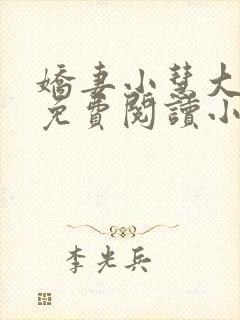 嬌妻小慧大
免費閱讀小
李光兵